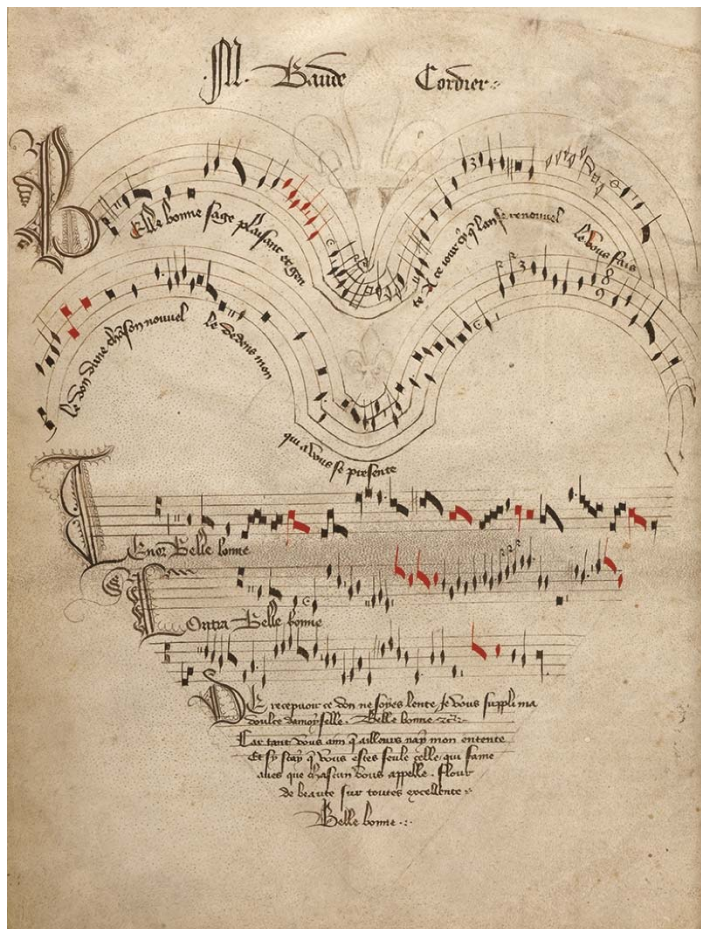 M. Baude Cordier
Belle bonne sage plaisant et gen
te A ce iour cy q̃ lan se renouuel
le vous fais
le don dune chãson nouuel
le dedens mon
qui a vous se presente
Tenor Belle bonne
Contra Belle bonne
De recepuoir ce don ne soyes lente Je vous suppli ma
doulce damoyselle. Belle bonne
Car tant vous aim q̃ ailleurs nay mon entente
Et sy scay q̃ vous estes seule celle qui fame
aues que chascun vous appelle. flour
de beaute sur toutes excellente
Belle bonne